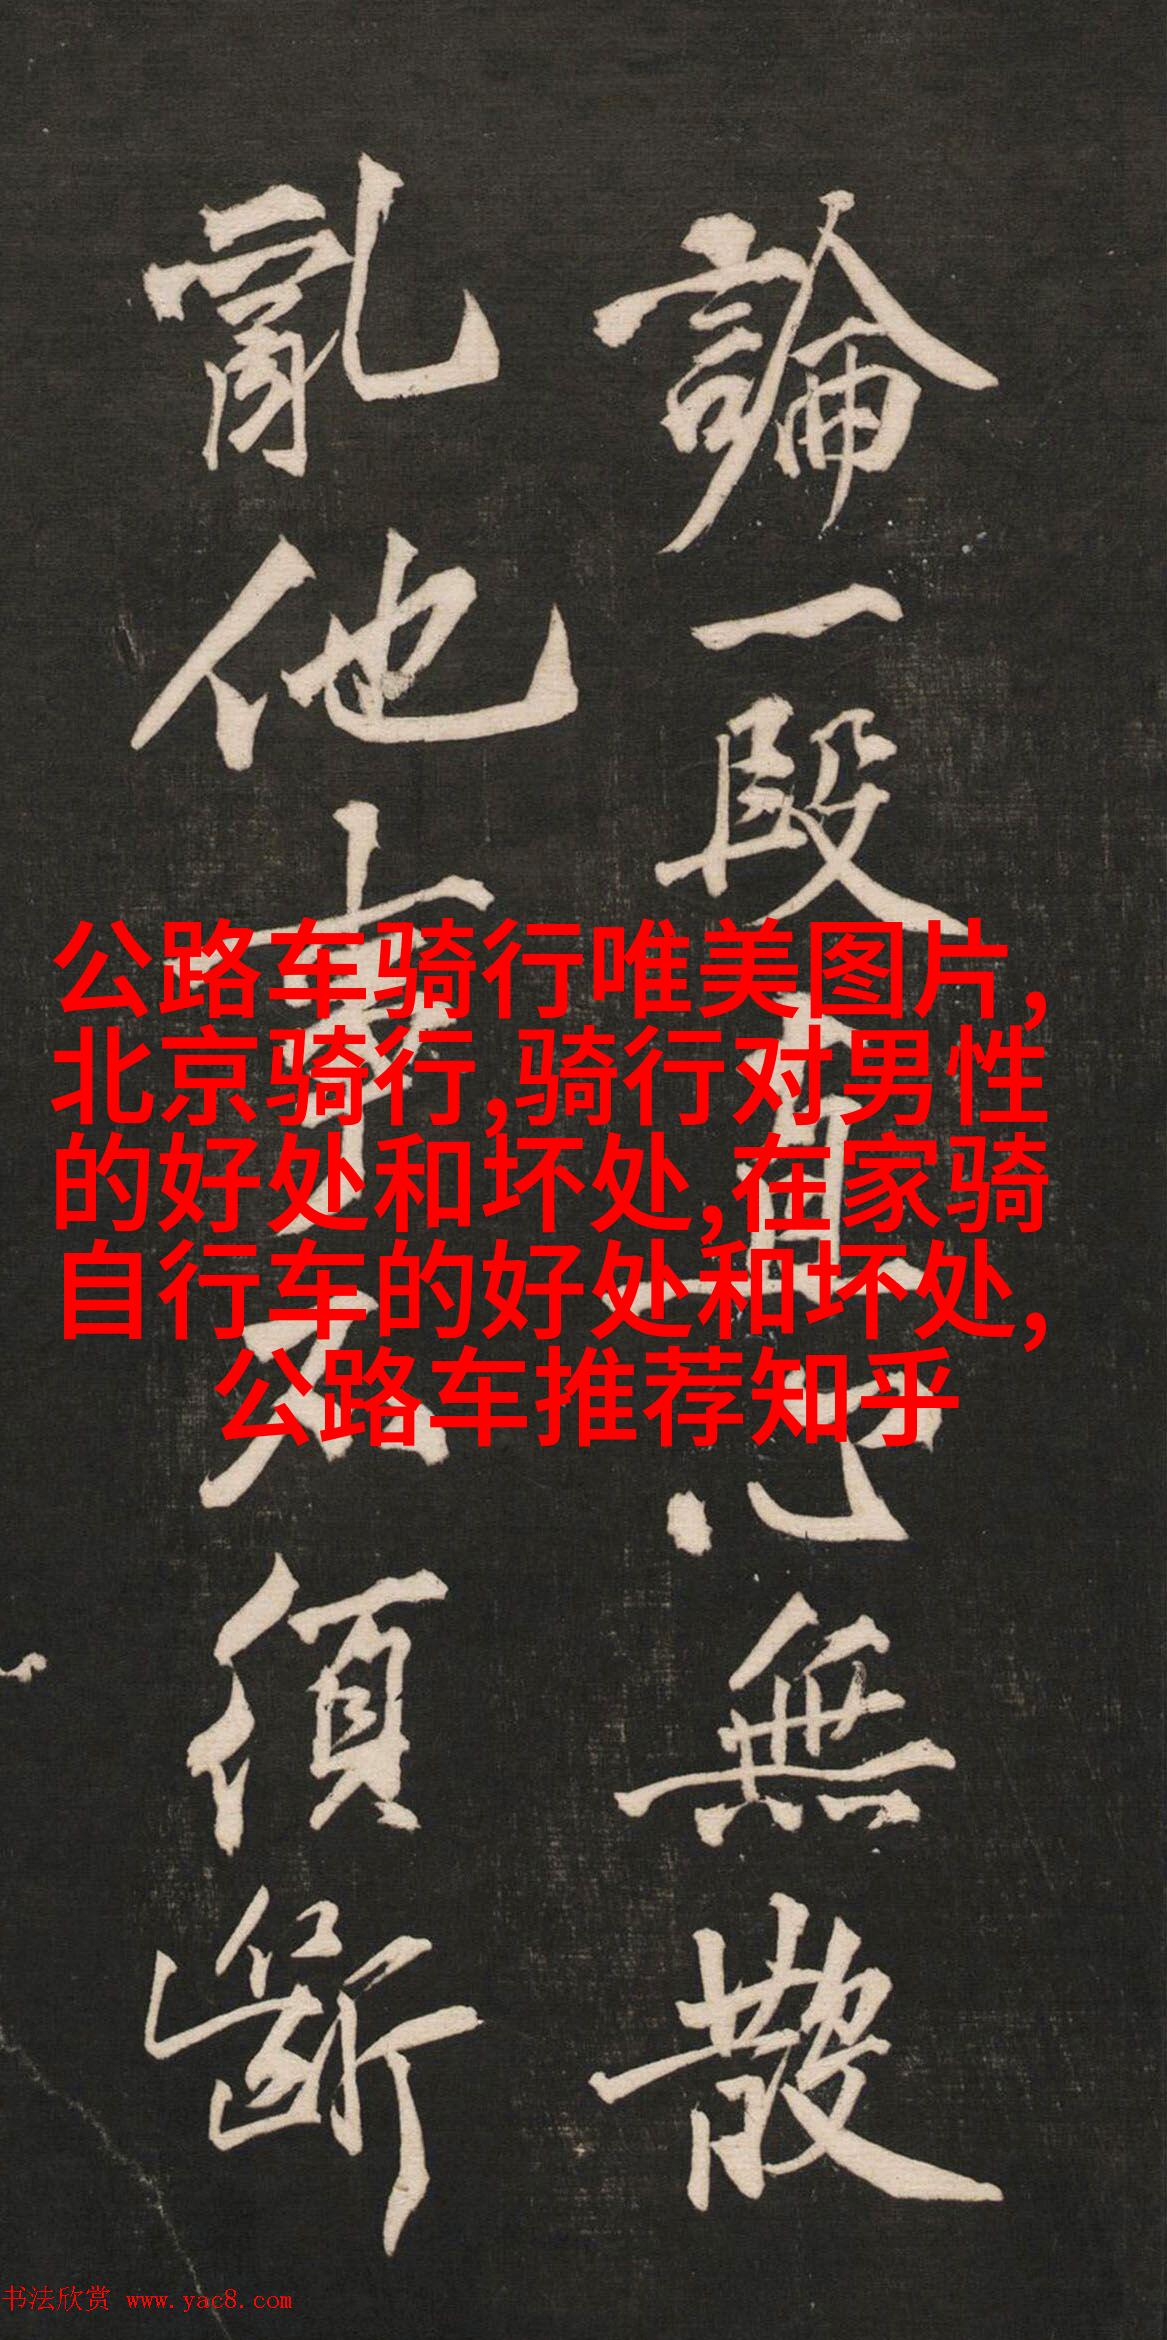 論一段直心無散
亂他事不須斷
公路车骑行唯美图片,
北京骑行,骑行对男性
的好处和坏处,在家骑
自行车的好处和坏处,
公路车推荐知乎
书法欣赏 www.yac8.com